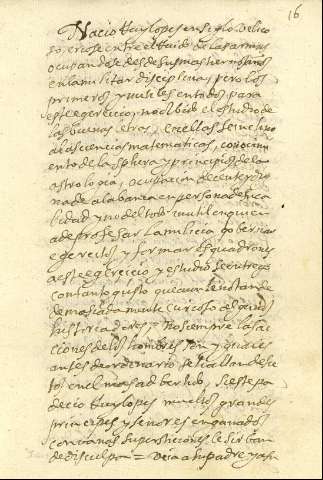 16
Nacio Ruylopes en siglo belico
so, criose entre el Ruido de las armas
ocupandose desde sus mas tiernos años
en la militar disciplina, pero los
primeros y mutiles en todos para
este egercicio; no olbido el estudio de
las buenas letras, en ellas se inclino
a las ciencias matematicas, conocimi
ento de la sphera y principios de la
astrologia, ocupacion decente, dig
na de alabança en persona de ca
lidad y no del todo inutil en quien
a de professar la milicia gobernar
egercitos y formar esquadrones
a este egercicio y estudio se entrego
con tanto gusto que
demasiada mente curioso algunos
historiadores, no siempre las ac
ciones de los hombres son yguales
antes de ordinario se hallan defe
tos en el mas adbertido, si este pa
decio Ruylopes muchos grandes
principes y señores engañados
con vanas supersticiones le sirban
de disculpa = veia a su padre y a su